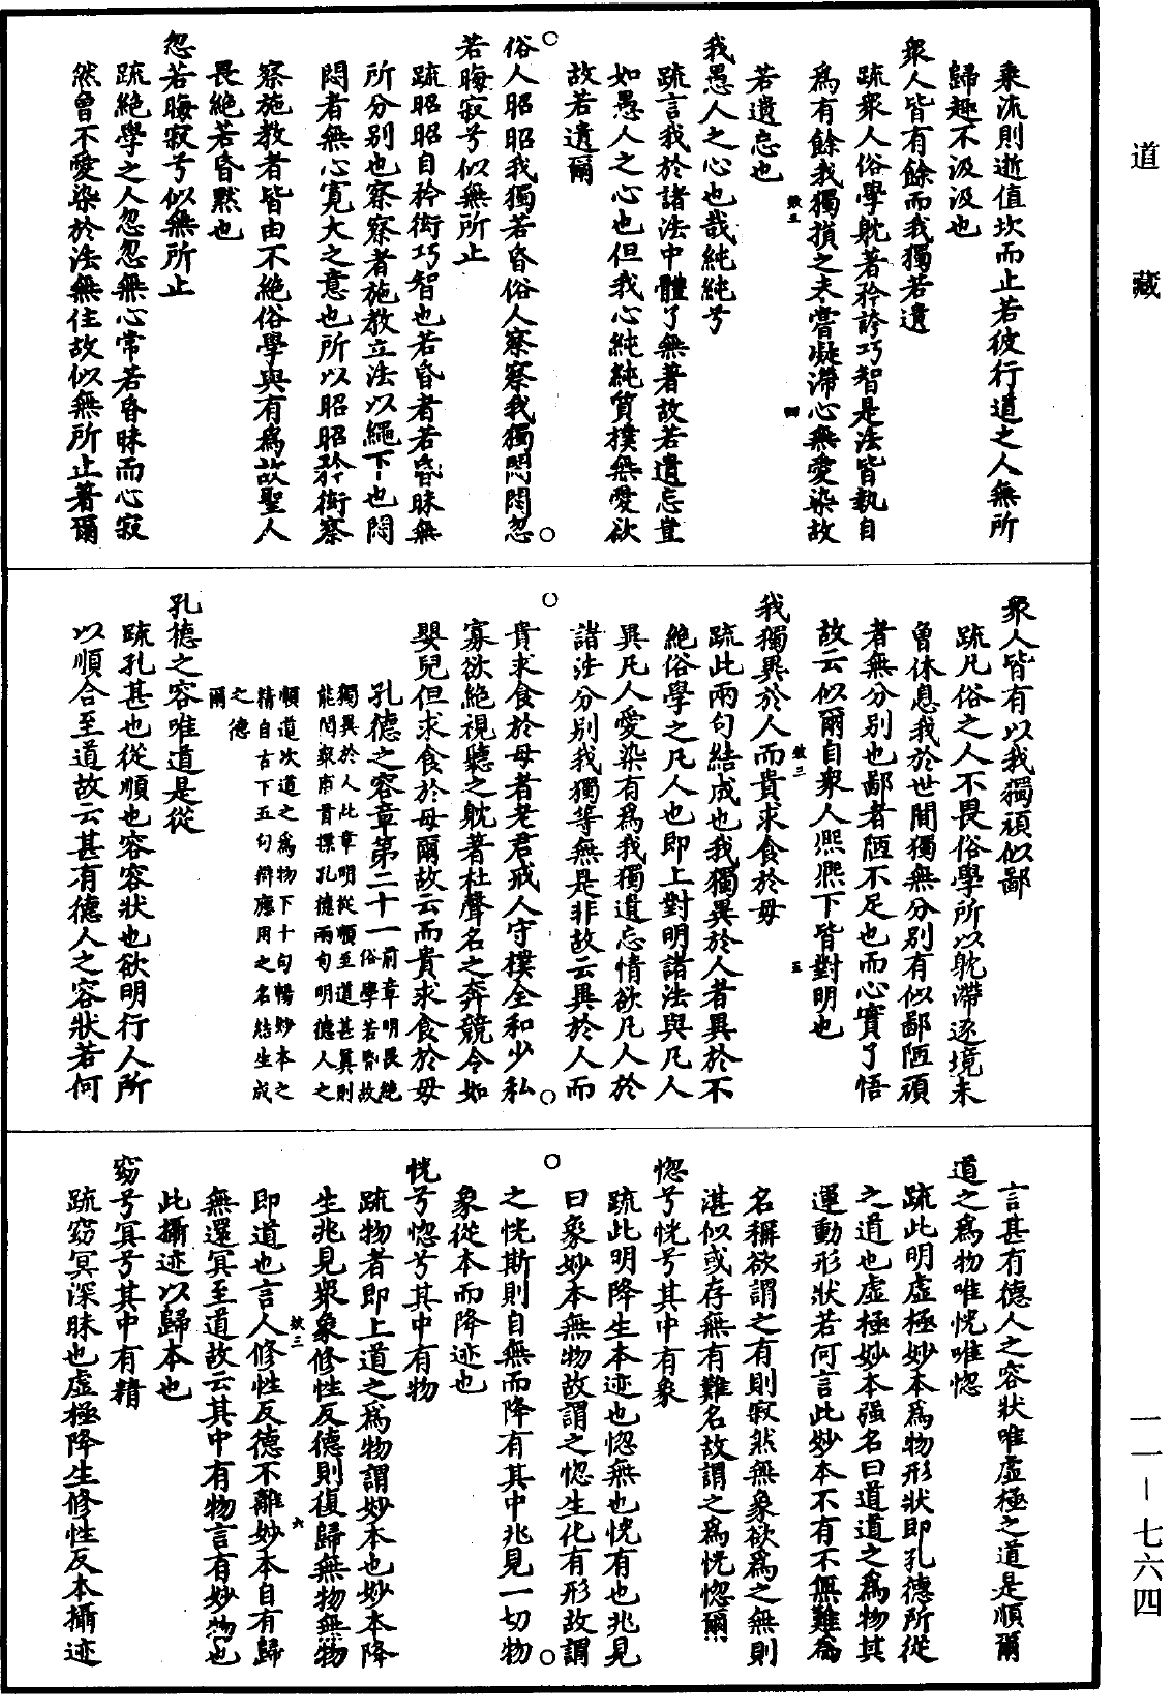 道藏
乘流則逝值坎而止若彼行道之人無所
歸趣不汲汲也
衆人皆有餘而我獨若遺
疏衆人俗學躭著矜誇巧智是法皆執自
爲有餘我獨損之未嘗凝滯心無愛染故
若遺忘也
我愚人之心也哉純純兮
疏言我於諸法中體了無著故若遺忘豈
如愚人之心也但我心純純質樸無愛欲
故若遺爾
俗人昭昭我獨若昏俗人察察我獨悶悶忽
若晦寂兮似無所止
疏昭昭自矜衒巧智也若昏者若昏昧無
所分别也察察者施教立法以繩下也悶
悶者無心寬大之意也所以昭昭矜衒察
察施教者皆由不絶俗學與有爲故聖人
畏絶若昏黙也
忽若晦寂兮似無所止
疏絶學之人忽忽無心常若昏昧而心寂
然曾不愛染於法無住故似無所止著爾
衆人皆有以我獨頑似鄙
疏凡俗之人不畏俗學所以躭滯逐境未
曾休息我於世間獨無分别有似鄙陋頑
者無分别也鄙者陋不足也而心實了悟
故云似爾自衆人熈熈下皆對明也
我獨異於人而貴求食於母
疏此兩句結成也我獨異於人者異於不
絶俗學之凡人也即上對明諸法與凡人
異凡人愛染有爲我獨遺忘情欲凡人於
諸法分别我獨等無是非故云異於人而
貴求食於母者老君戒人守樸全和少私
寡欲絶視聽之躭著杜聲名之奔競令如
嬰兒但求食於母爾故云而貴求食於母
孔德之容章第二十一
前章明畏絶俗學若昏故
獨異於人此章明從順至道甚眞則
能閱衆甫首標孔德兩句明德人之
順道次道之爲物下十句暢妙本之
精自古下五句辯應用之名結生成
之德爾
孔德之容唯道是從
疏孔甚也從順也容容狀也欲明行人所
以順合至道故云甚有德人之容狀若何
言甚有德人之容狀唯虚極之道是順爾
道之爲物唯恍唯惚
疏此明虚極妙本爲物形狀即孔德所從
之道也虚極妙本强名曰道道之爲物其
運動形狀若何言此妙本不有不無難爲
名稱欲謂之有則寂然無象欲爲之無則
湛似或存無有難名故謂之爲恍惚爾
惚兮恍兮其中有象
疏此明降生本迹也惚無也恍有也兆見
曰象妙本無物故謂之惚生化有形故謂
之恍斯則自無而降有其中兆見一切物
象從本而降迹也
恍兮惚兮其中有物
疏物者即上道之爲物謂妙本也妙本降
生兆見衆象修性反德則復歸無物無物
即道也言人修性反德不離妙本自有歸
無還冥至道故云其中有物言有妙物也
此攝迹以歸本也
窈兮冥兮其中有精
疏窈冥深昧也虚極降生修性反本攝迹
一一－七六四